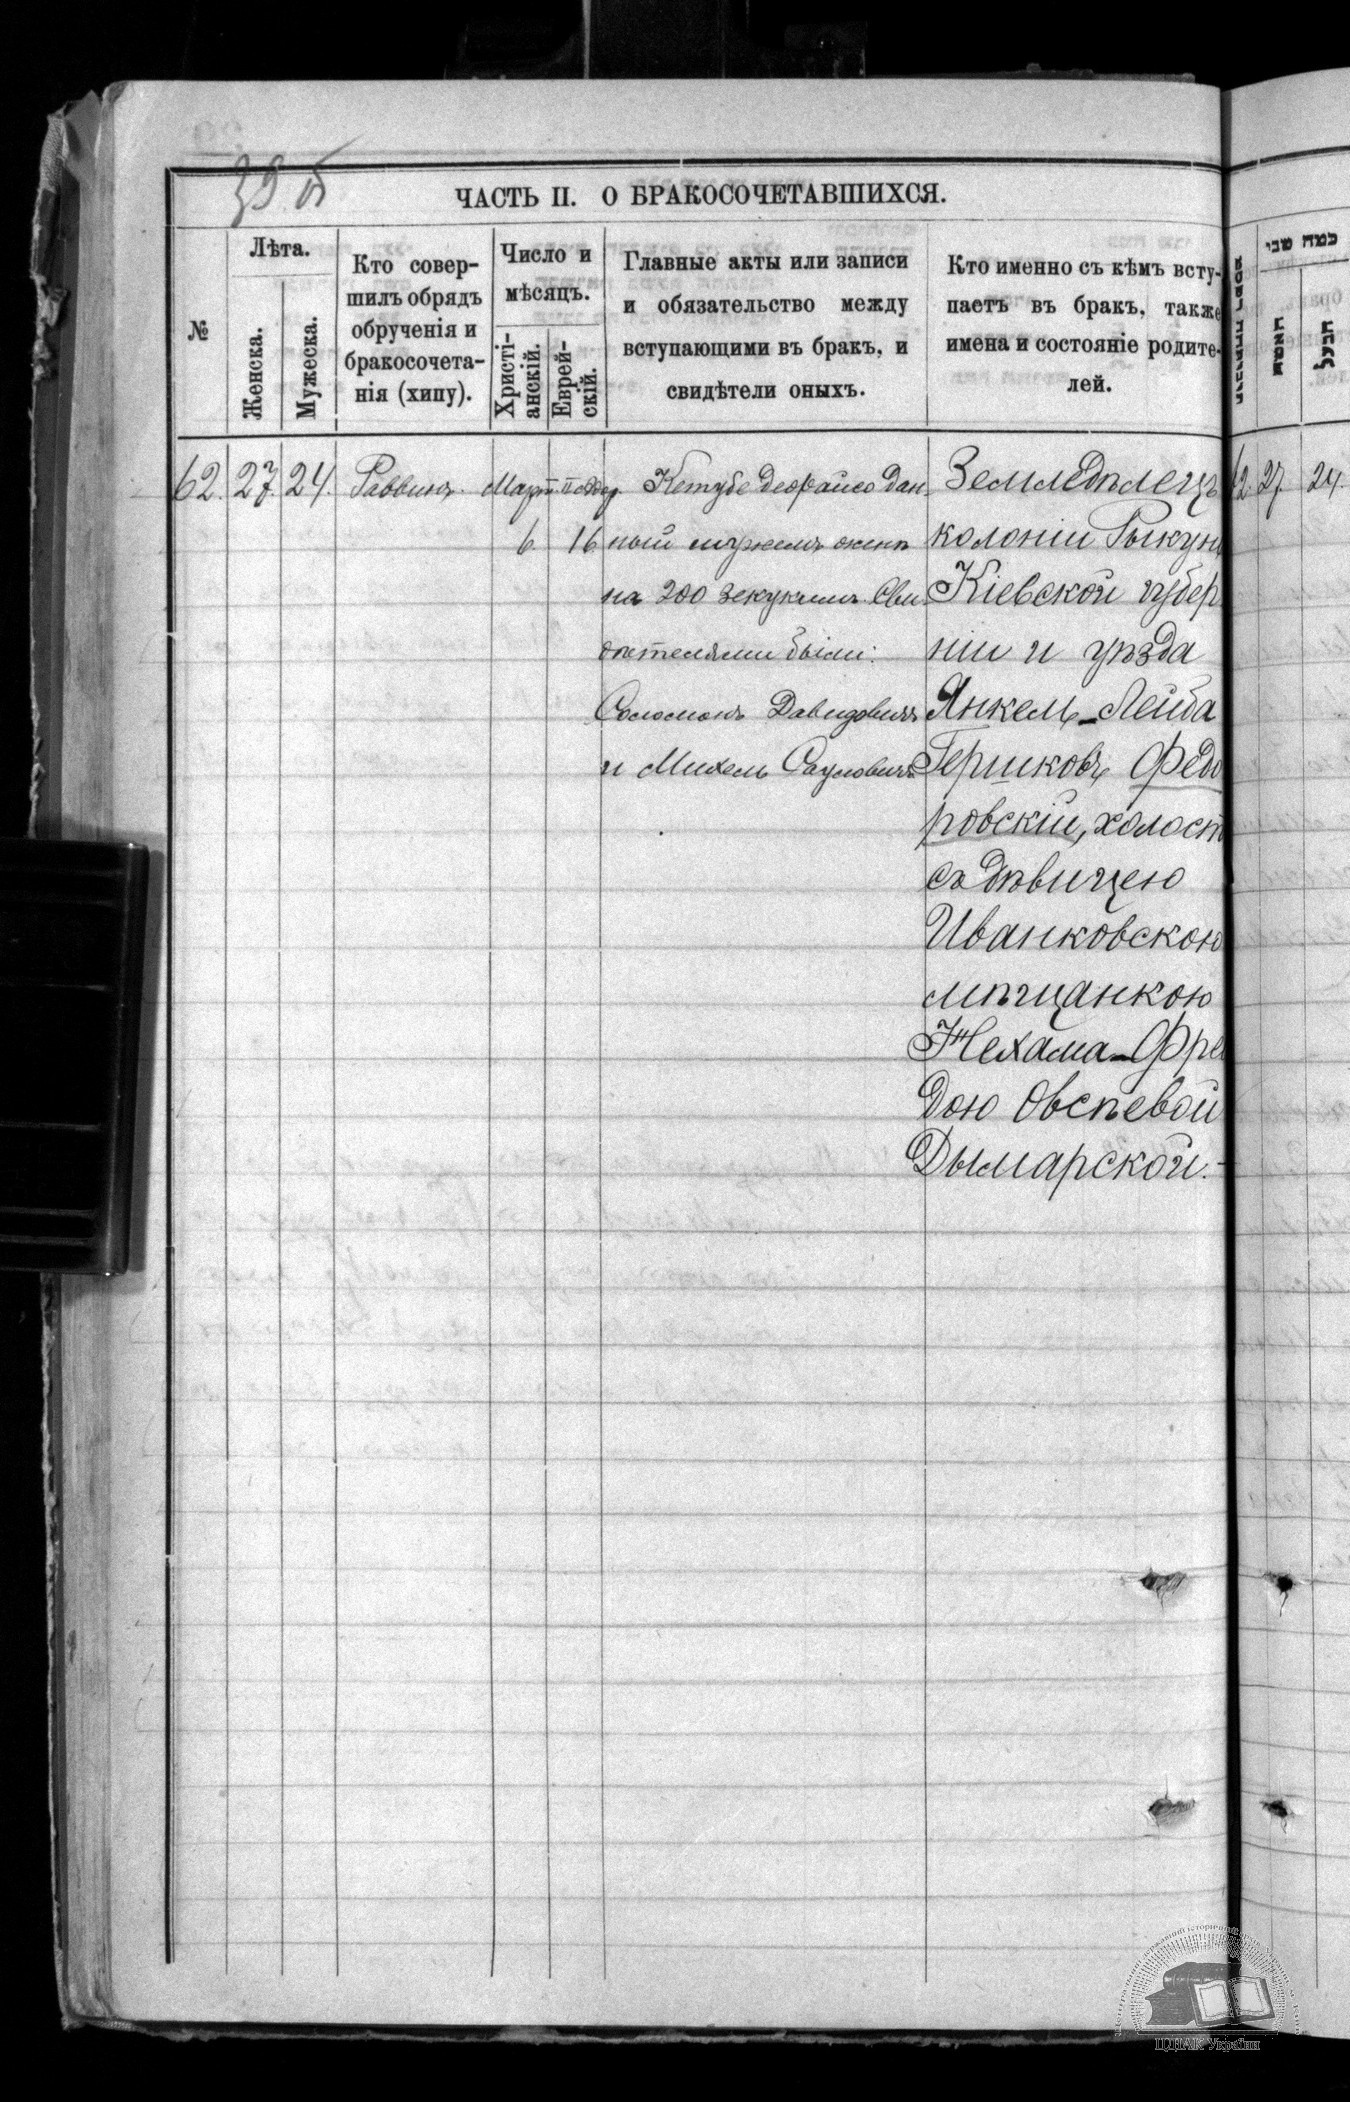 39 об
ЧАСТЬ II. О БРАКОСОЧЕТАВШИХСЯ.
№
Лѣта.
Женска.
Мужеска.
Кто совер-
шилъ обрядъ
обрученія и
бракосочета-
нія (хипу).
Число и
мѣсяцъ.
Христі-
анскій.
Еврей-
скій.
Главные акты или записи
и обязательство между
вступающими въ бракъ, и
свидѣтели оныхъ.
Кто именно съ кѣмъ всту-
паетъ въ бракъ, также
имена и состояніе родите-
лей.
62. 27. 24. Раввинъ.
Март
6 16
Кетубе деорайсо дан-
ный мужемъ женѣ
на 200 зекукимъ. Сви-
дѣтелями были:
Соломонъ Давидовичъ
и Михель Сауловичъ
Земледѣлецъ
колоніи Рыкунь
Кіевской губер
ніи и уѣзда
Янкель-Лейба
Гершковъ Федо
ровскій, холост
съ дѣвицею
Иванковскою
мѣщанкою
Нехама-Фрей
дою Овсѣевой
Дымарской.-
כמה שני
האשה
הבעל
62. 27. 24.
ЦДІАК України